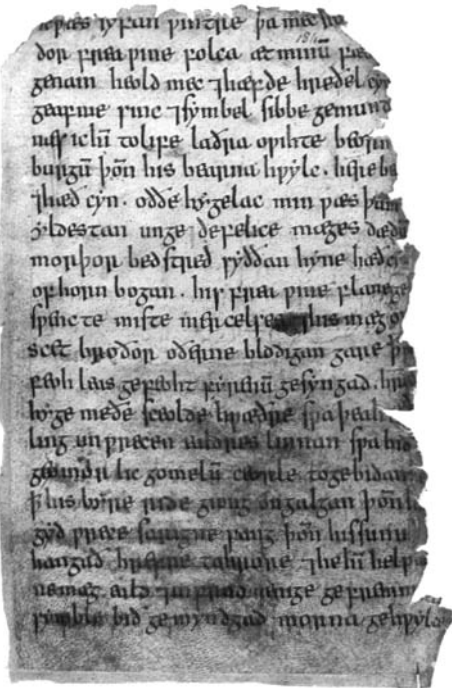 ƿæs syfan ƿintre þa mec sin
dor frea ƿine folca æt minū fæ
genam heold mec ⁊ hæfde hreðel cyn
geaf me sinc ⁊ symbel sibbe gemund
næs ic hī to life laðra oƿihte beorn
burgū þōn his bearna hƿylc. herebe
⁊ hæð cyn. oððe hygelac min ƿæs þam
yldestan unge defelice mæges dædū
morþor bed stred syððan hyne hæð c
of horn bogan. his frea ƿine flane ge
sƿencte miste mercelses ⁊ his mæg o
scet broðor oðerne blodigan gare þ
feoh leas gefeoht fyrenū gesyngad. hre
hyge meðe sceolde hƿæðre sƿa þeah
ling un ƿrecen ealdres linnan sƿa bið
geomor lic gomelū ceorle to gebidan
þ his byre ride giong on galgan þōn
gyd ƿrece sarigne sang þōn his sunu
hangað hrefne to hroðre ⁊ he hī help
ne mæg eald ⁊ infrod ænige gefremm
symble bið gemyndgad morna gehƿylc